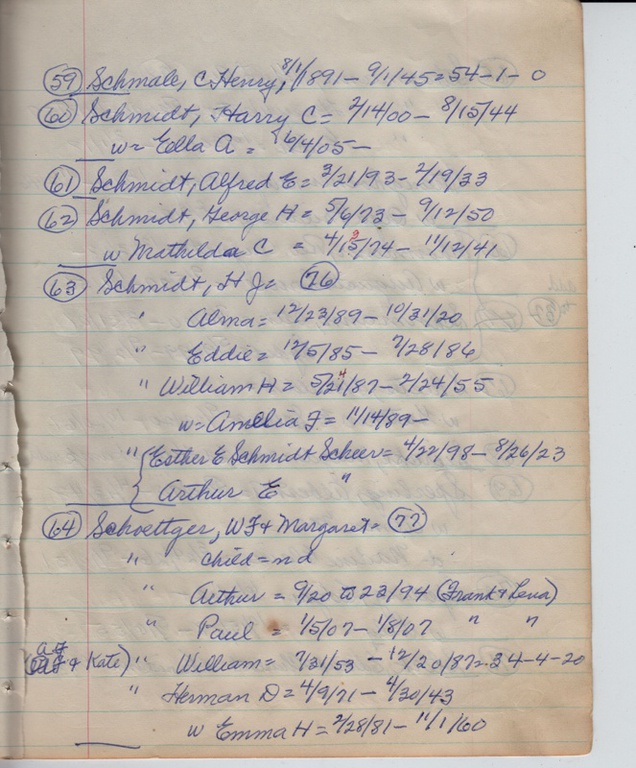 59 Schmale, C Henry, 8/1/1891 - 9/1/45 = 54-1-0
60 Schmidt, Harry C = 2/14/00 - 8/15/44
w = Ella A = 6/4/05 -
61 Schmidt, Alfred E = 3/21/93 - 2/19/33
62 Schmidt, George H = 5/6/73 - 9/12/50
w Mathilda C = 4/15/74 - 11/12/41
63 Schmidt, H J = 76
" Alma = 12/23/89 - 10/31/20
" Eddie = 12/5/85 - 7/28/86
" William H = 5/21/87 - 2/24/55
w = Amelia F = 11/14/89 -
" Esther E Schmidt Scheer = 4/22/98 - 8/26/23
Arthur E "
64 Schoettger, W F & Margaret = 77
" child = nd
" Arthur = 9/20 to 23/94 (Frank & Lena)
" Paul = 1/5/07 - 1/8/07 " "
(A F & Kate) " William = 7/31/53 - 12/20/87 = 34-4-20
" Herman D = 4/9/71 - 4/30/43
w Emma H = 2/28/81 - 11/1/60